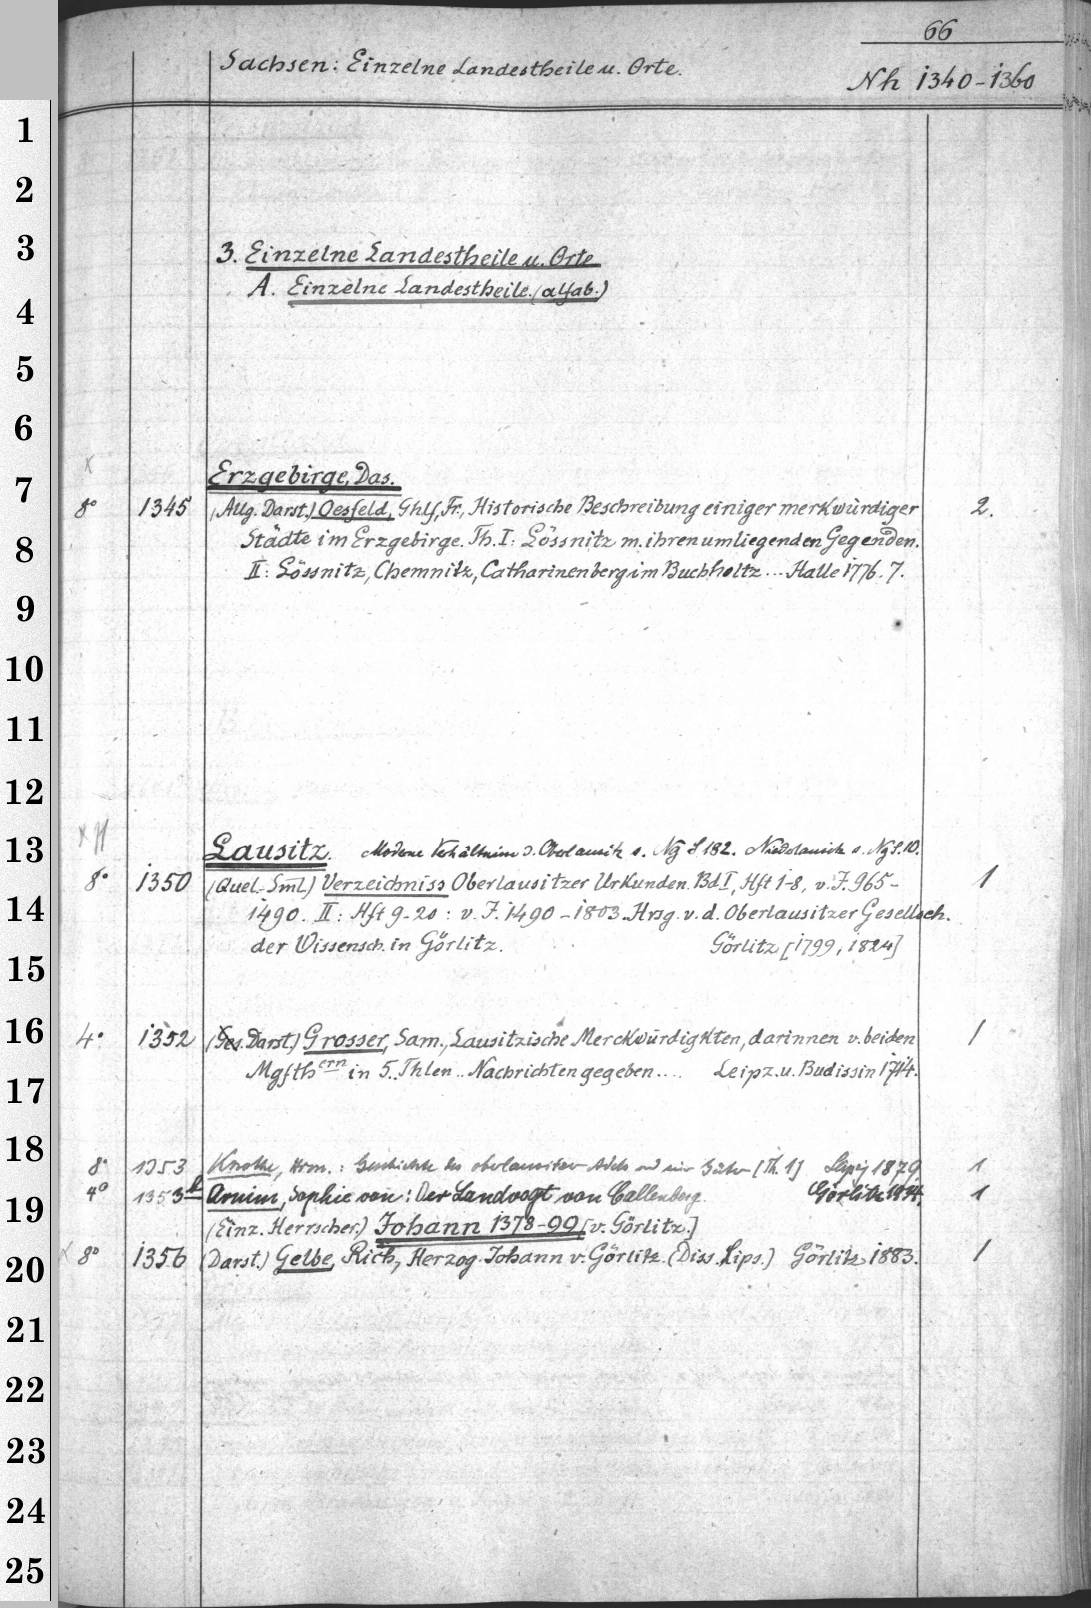 66
Sachsen: Einzelne Landestheile u. Orte.
Nh 1340-1360
1
2
3
4
5
6
7
8
9
10
11
12
13
14
15
16
17
18
19
20
21
22
23
24
25
3. Einzelne Landestheile u. Orte
A. Einzelne Landestheile. (alfab.)
x
Erzgebirge, Das.
8° 1345 (Allg. Darst.) Oesfeld, Ghlf, Fr., Historische Beschreibung einiger merkwürdiger 2.
Städte im Erzgebirge. Th. I: Lössnitz m. ihren umliegenden Gegenden.
II: Lössnitz, Chemnitz, Catharinenberg im Buchholtz ... Halle 1776. 7.
x H
Lausitz. Moderne Verhältnisse d. Oberlausitz s. Ng S 182. Niederlausitz s. Ng S. 10.
8° 1350 (Quel.-Sml.) Verzeichniss Oberlausitzer Urkunden. Bd I, Hft 1-8, v. J. 965- 1
1490. II: Hft 9-20: v. J. 1490-1803. Hrsg. v. d. Oberlausitzer Gesellsch.
der Wissensch. in Görlitz. Görlitz [1799, 1824]
4° 1352 (Ges. Darst.) Grosser, Sam., Lausitzische Merckwürdigkten, darinnen v. beiden 1
Mgfthern in 5. Thlen .. Nachrichten gegeben.... Leipz. u. Budissin 1714.
8° 1353 Knothe, Herm.: Geschichte des oberlausitzer Adels und seiner Güter [Th. 1] Leipzig 1879 1
4° 1353b Arnim, Sophie von: Der Landvogt von Callenberg. Görlitz 1934. 1
(Einz. Herrscher.) Johann 1378-99 [v. Görlitz.]
x 8° 1356 (Darst.) Gelbe, Rich., Herzog Johann v. Görlitz. (Diss. Lips.) Görlitz 1883. 1